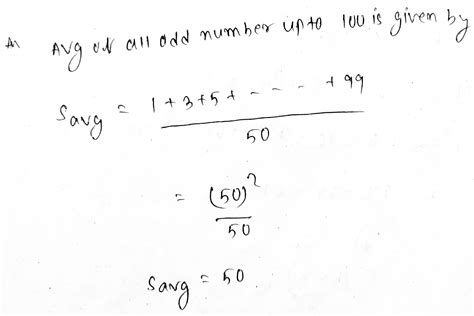 Avg of all odd number upto 100 is given by
Savg = 1 + 3 + 5 + - - - - + 99
50
= (50)²
50
Savg = 50